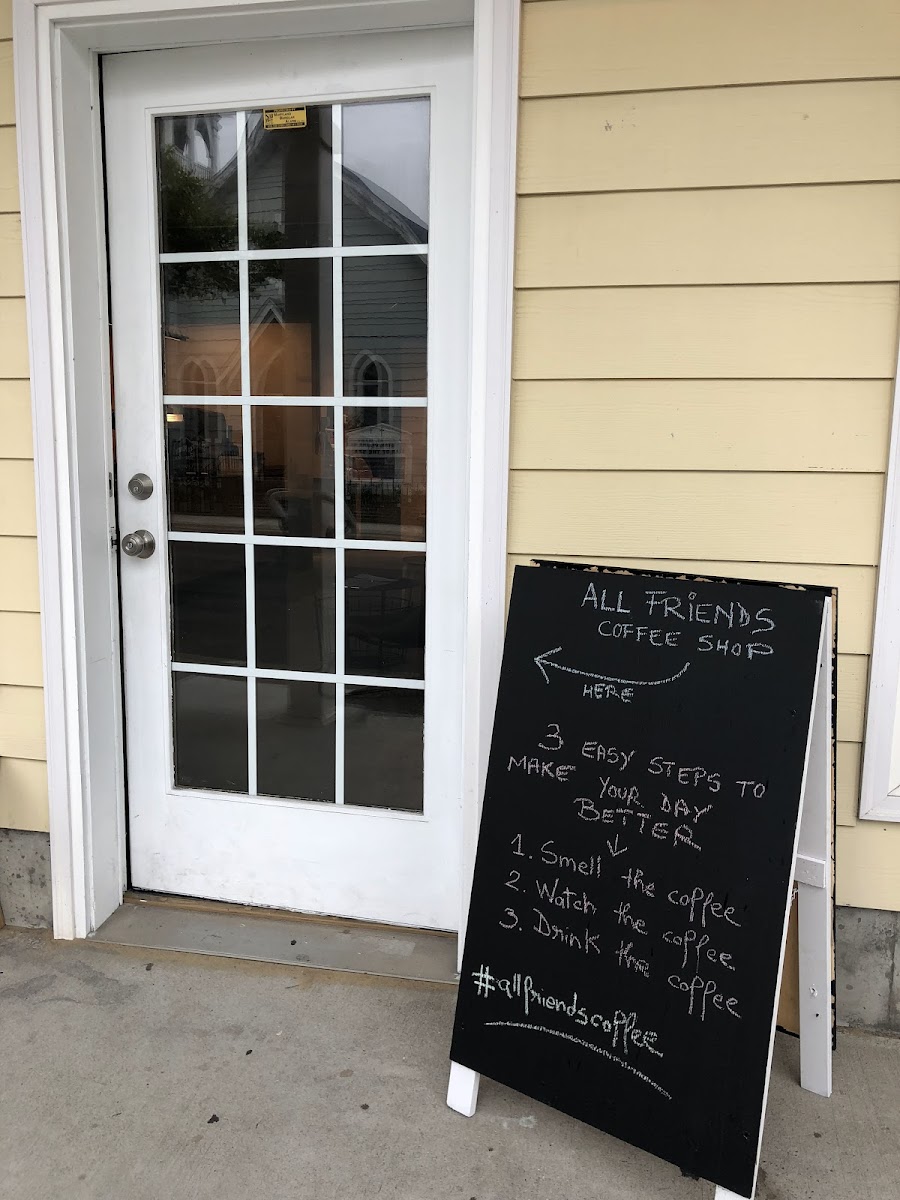 ALL FRiENDS
COFFEE SHOP
HERE
3 EASY STEPS TO
MAKE YOUR DAY
BETTER
1. Smell the coffee
2. Watch the coffee
3. Drink the coffee
#allfriendscoffee